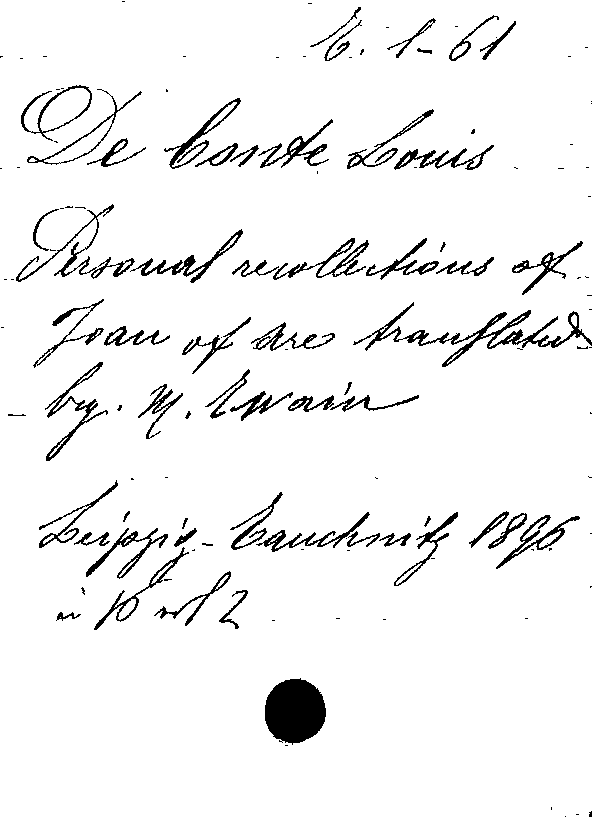 E. 1-61
De Conte Louis
Personal recollections of
Joan of Arc translated
by. M. Twain
Leipzig - Tauchnitz 1896
in 16 vol 2